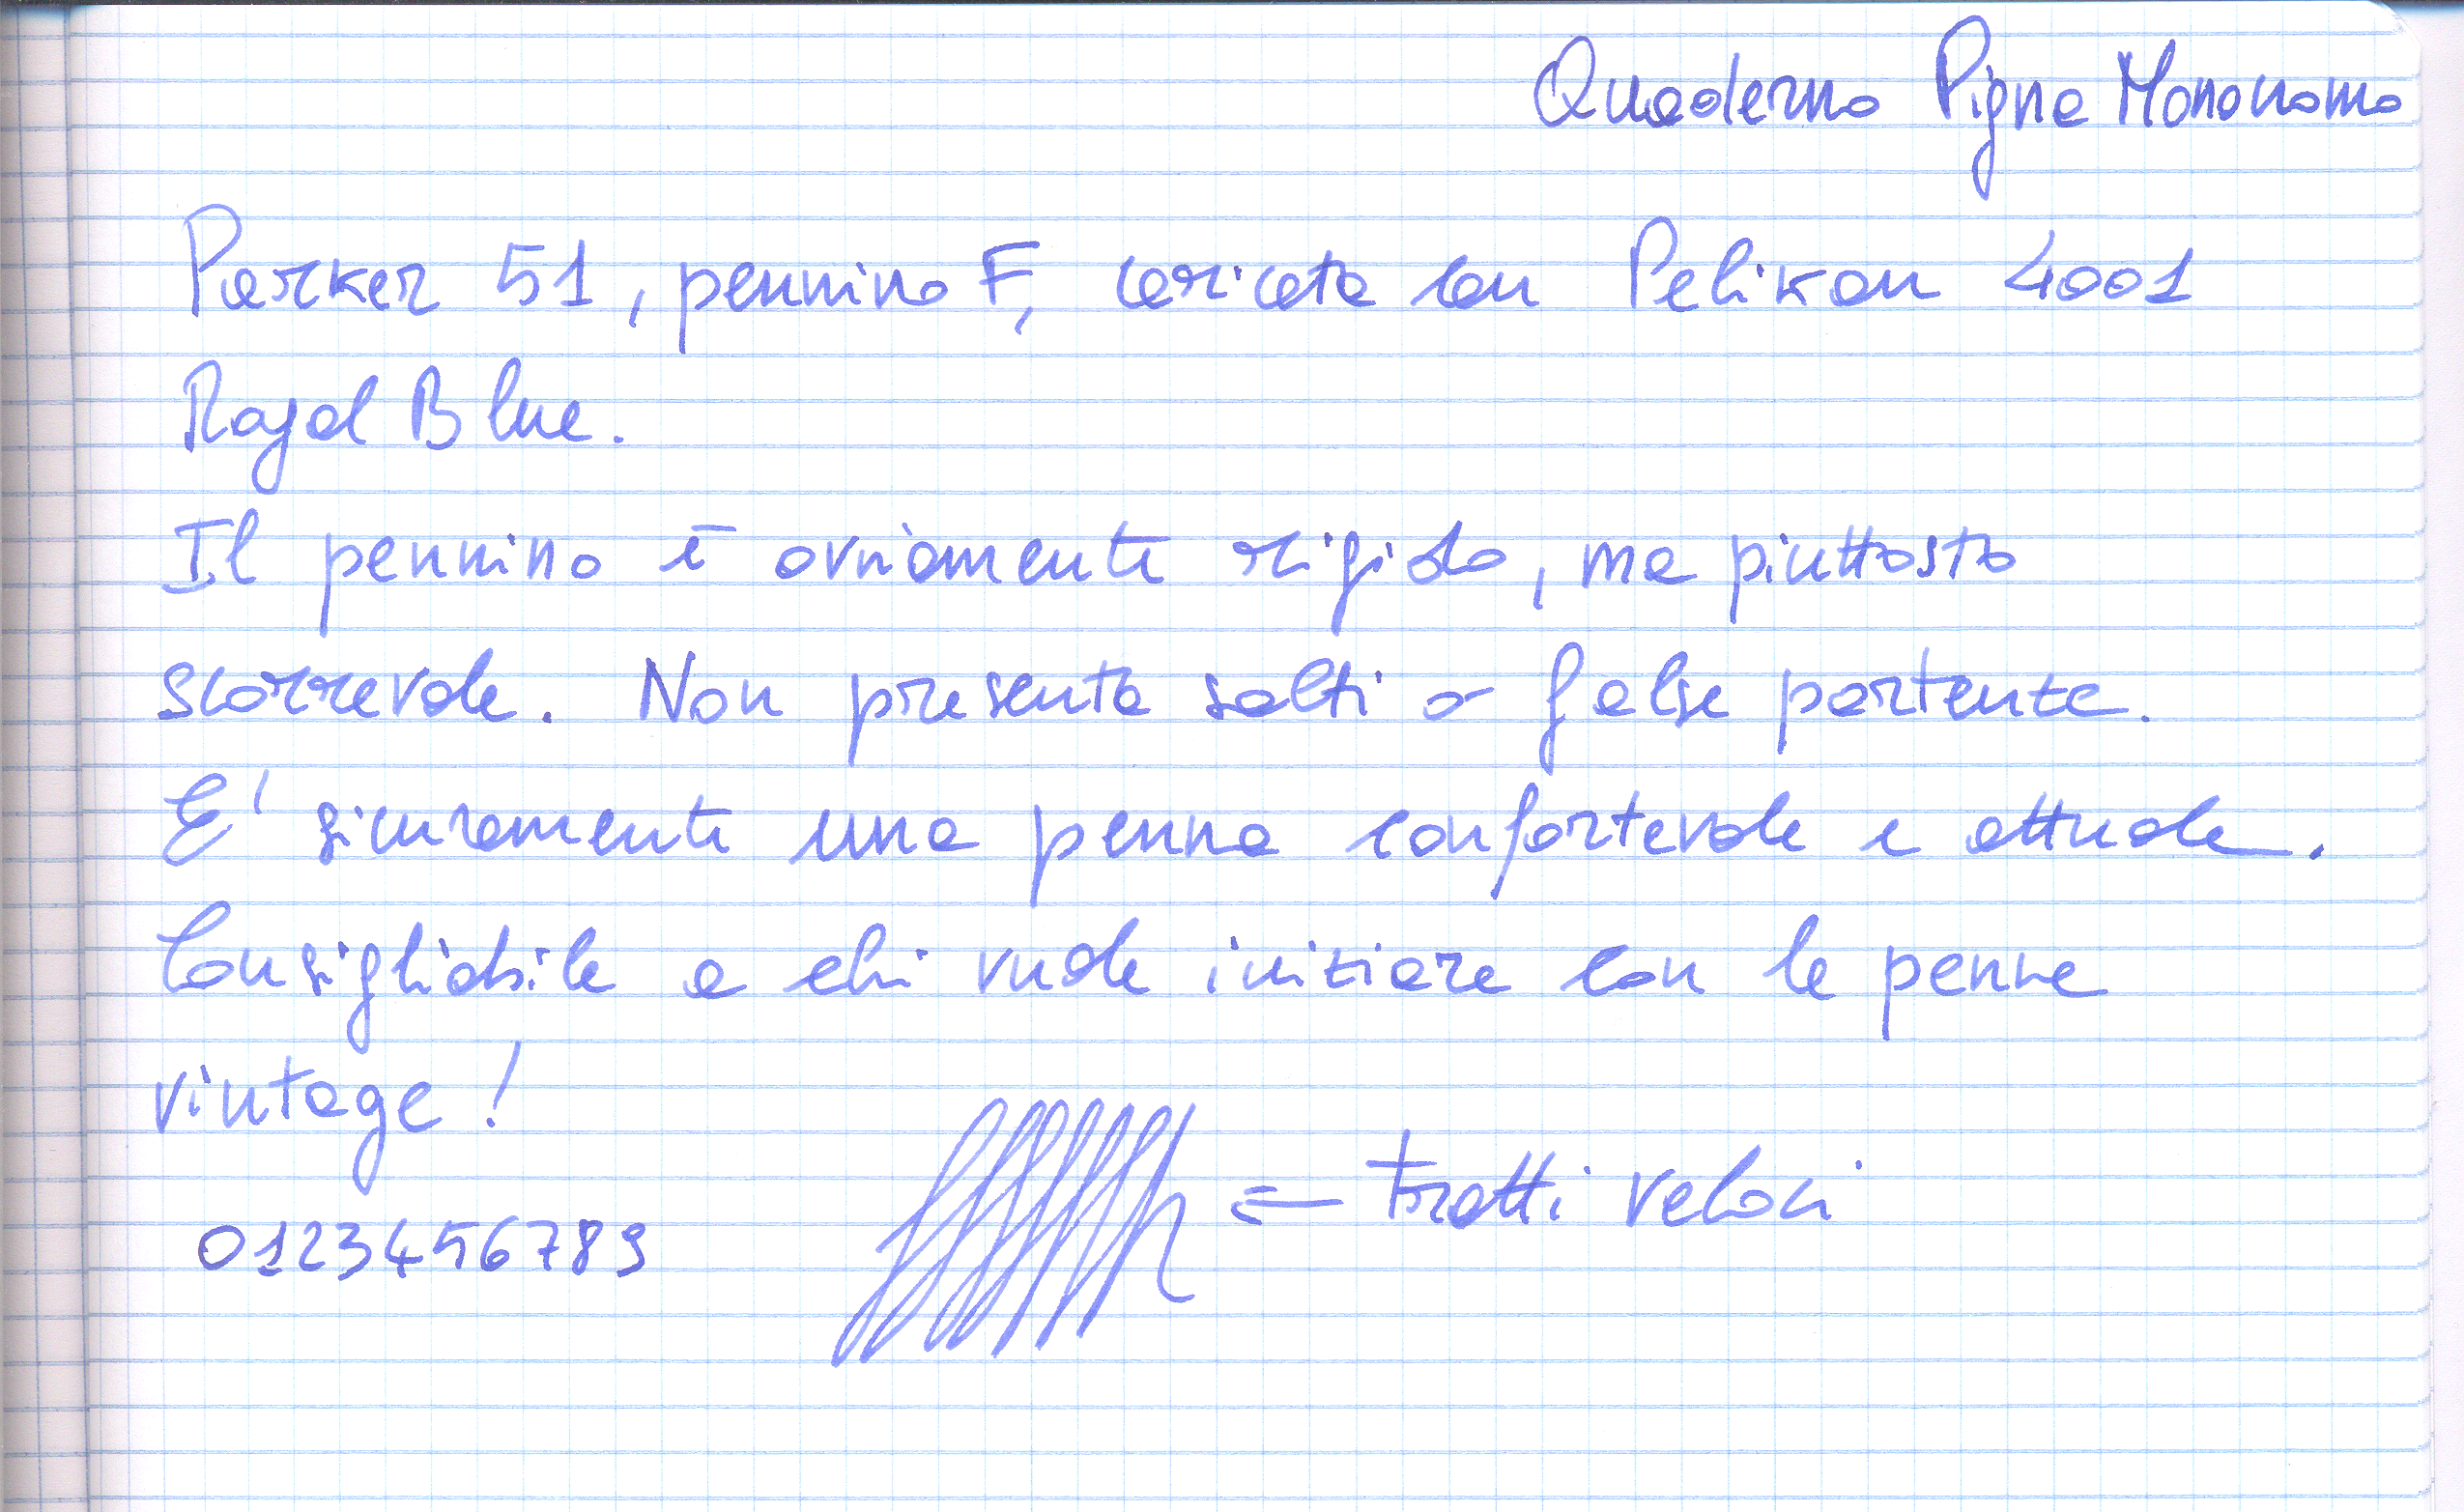 Quaderno Pigna Monocromo
Parker 51, pennino F, caricata con Pelikan 4001
Royal Blue.
Il pennino è ovviamente rigido, ma piuttosto
scorrevole. Non presenta salti o false partenze.
E' sicuramente una penna confortevole e attuale.
Consigliabile a chi vuole iniziare con le penne
vintage!
0123456789
= tratti veloci